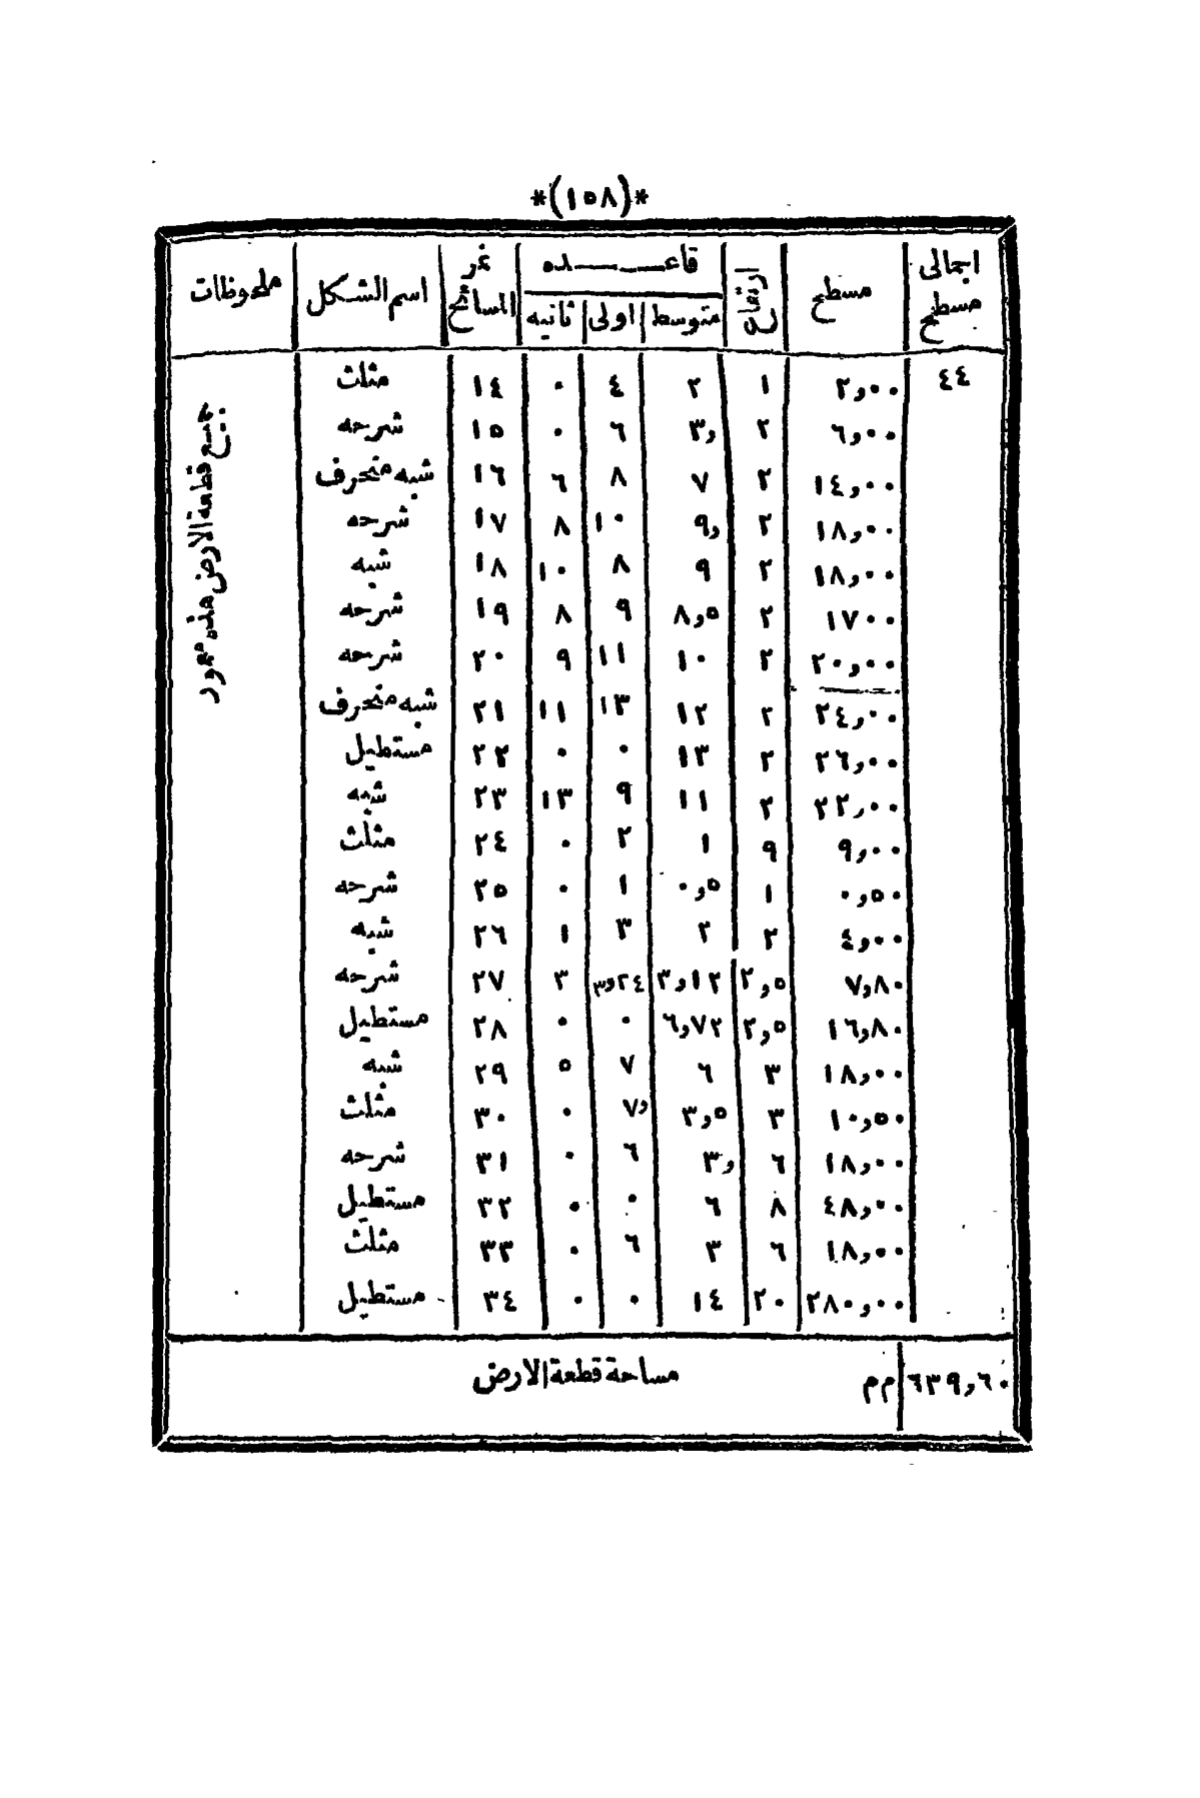 *(١٥٨)*
اجمالى مسطح | مسطح | ارتفاع | قاعـــــده متوسط | اولى | ثانيه | نمر المسائح | اسم الشكل | ملحوظات
٤٤ | ٢,٠٠ | ١ | ٢ | ٤ | ٠ | ١٤ | مثلث
٦,٠٠ | ٢ | ٣, | ٦ | ٠ | ١٥ | شرحه
١٤,٠٠ | ٢ | ٧ | ٨ | ٦ | ١٦ | شبه منحرف
١٨,٠٠ | ٢ | ٩, | ١٠ | ٨ | ١٧ | شرحه
١٨,٠٠ | ٢ | ٩ | ٨ | ١٠ | ١٨ | شبه
١٧٠٠ | ٢ | ٨,٥ | ٩ | ٨ | ١٩ | شرحه
٢٠,٠٠ | ٢ | ١٠ | ١١ | ٩ | ٢٠ | شرحه
٢٤,٠٠ | ٢ | ١٢ | ١٣ | ١١ | ٢١ | شبه منحرف
٢٦,٠٠ | ٢ | ١٣ | ٠ | ٠ | ٢٢ | مستطيل
٢٢,٠٠ | ٢ | ١١ | ٩ | ١٣ | ٢٣ | شبه
٩,٠٠ | ٩ | ١ | ٢ | ٠ | ٢٤ | مثلث
٠,٥٠ | ١ | ٠,٥ | ١ | ٠ | ٢٥ | شرحه
٤,٠٠ | ٢ | ٢ | ٣ | ١ | ٢٦ | شبه
٧,٨٠ | ٢,٥ | ٣,١٢ | ٣,٢٤ | ٣ | ٢٧ | شرحه
١٦,٨٠ | ٢,٥ | ٦,٧٢ | ٠ | ٠ | ٢٨ | مستطيل
١٨,٠٠ | ٣ | ٦ | ٧ | ٥ | ٢٩ | شبه
١٠,٥٠ | ٣ | ٣,٥ | ٧, | ٠ | ٣٠ | مثلث
١٨,٠٠ | ٦ | ٣, | ٦ | ٠ | ٣١ | شرحه
٤٨,٠٠ | ٨ | ٦ | ٠ | ٠ | ٣٢ | مستطيل
١٨,٠٠ | ٦ | ٣ | ٦ | ٠ | ٣٣ | مثلث
٢٨٠,٠٠ | ٢٠ | ١٤ | ٠ | ٠ | ٣٤ | مستطيل
جميع قطعة الارض هذه
٦٣٩,٦٠ | م م مساحة قطعة الارض